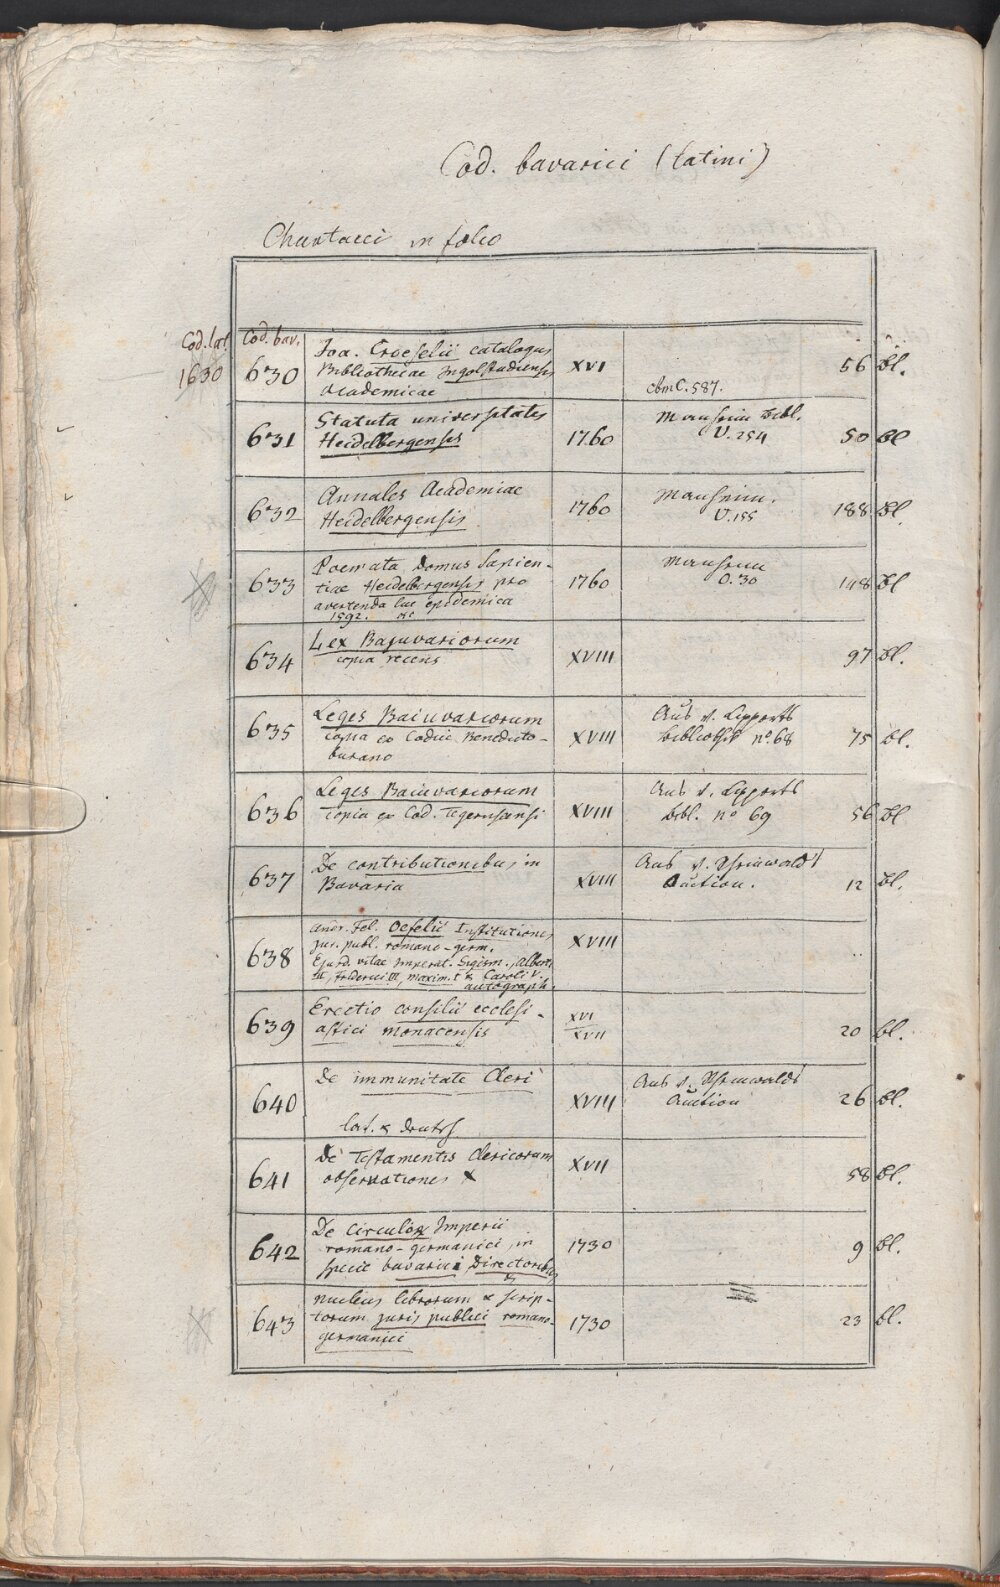 Cod. bavarici (latini)
Chartacei in folio
Cod. lat. Cod. bav.
1630 630 Joa. Croeselii catalogus
Bibliothecae Ingolstadiensis
Academicae
XVI
cbm C. 587.
56 Bl.
631 Statuta universitatis
Heidelbergensis
1760
Manheim Bibl.
V. 254
50 Bl
632 Annales Academiae
Heidelbergensis
1760
Manheim.
V. 155
188 Bl.
633 Poemata Domus Sapien-
tiae Heidelbergensis pro
avertenda lue epidemica
1592.
1760
Manheim
O. 30
148 Bl
634 Lex Bajuvariorum
copia recens
XVIII
97 Bl.
635 Leges Baiuvariorum
copia ex Codice Benedicto-
burano
XVIII
Aus v. Lipperts
Bibliothek nº 68
75 Bl.
636 Leges Baiuvariorum
Copia ex Cod. Tegernseensi
XVIII
Aus v. Lipperts
Bibl. nº 69
56 Bl
637 De contributionibus in
Bavaria
XVIII
Aus v.
Auction.
12 Bl.
638 Andr. Fel. Oefelii Institutiones
jur. publ. romano-germ.
Ejusd. vitae Imperat. Sigism., Alberti
III, Friderici III, Maxim. I & Caroli V.
autograph.
XVIII
639 Erectio consilii ecclesi-
astici monacensis
XVI
XVII
20 bl.
640 De immunitate Cleri
lat. & deutsch
XVIII
Aus v.
Auction
26 Bl.
641 De Testamentis Clericorum
observationes
XVII
58 Bl.
642 De Circulis Imperii
romano-germanici, in
specie bavarici Directoribus
1730
9 Bl.
643 Nucleus librorum & scrip-
torum juris publici romano-
germanici
1730
23 bl.